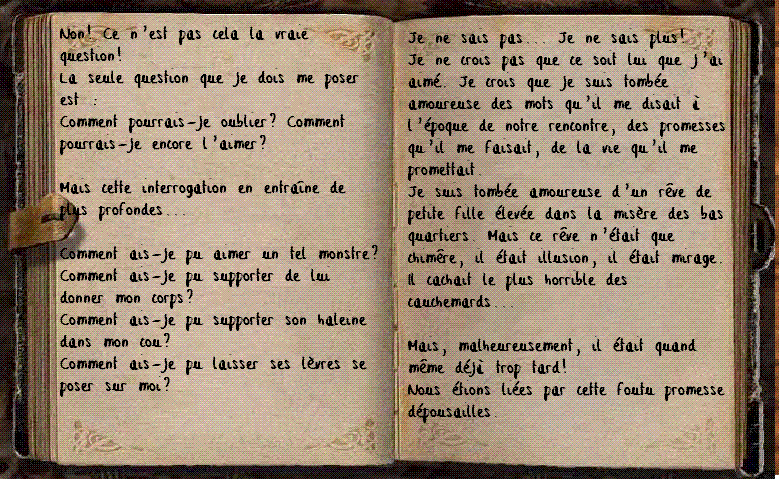 Non! Ce n'est pas cela la vraie
question!
La seule question que je dois me poser
est :
Comment pourrais-je oublier? Comment
pourrais-je encore l'aimer?
Mais cette interrogation en entraîne de
plus profondes...
Comment ais-je pu aimer un tel monstre?
Comment ais-je pu supporter de lui
donner mon corps?
Comment ais-je pu supporter son haleine
dans mon cou?
Comment ais-je pu laisser ses lèvres se
poser sur moi?
Je ne sais pas.... Je ne sais plus!
Je ne crois pas que ce soit lui que j'ai
aimé. Je crois que je suis tombée
amoureuse des mots qu'il me disait à
l'époque de notre rencontre, des promesses
qu'il me faisait, de la vie qu'il me
promettait.
Je suis tombée amoureuse d'un rêve de
petite fille élevée dans la misère des bas
quartiers. Mais ce rêve n'était que
chimêre, il était illusion, il était mirage.
Il cachait le plus horrible des
cauchemards...
Mais, malheureusement, il était quand
même déjà trop tard!
Nous étions liées par cette foutu promesse
dépousailles.